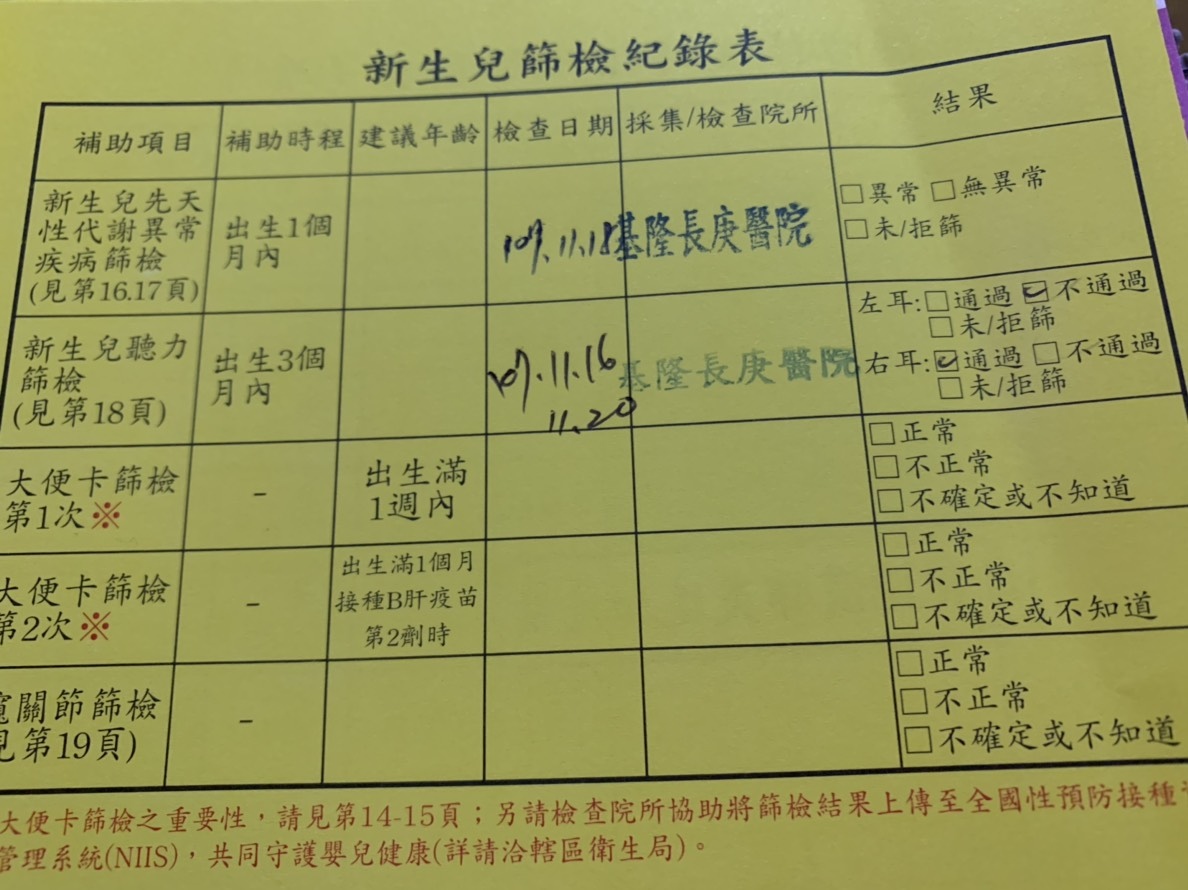 新生兒篩檢紀錄表
補助項目 補助時程 建議年齡 檢查日期 採集/檢查院所 結果
新生兒先天
性代謝異常
疾病篩檢
(見第16.17頁)
出生1個
月內
107.11.18
基隆長庚醫院
□異常 □無異常
□未/拒篩
新生兒聽力
篩檢
(見第18頁)
出生3個
月內
107.11.16
11.20
基隆長庚醫院
左耳:□通過 ☑不通過
□未/拒篩
右耳:☑通過 □不通過
□未/拒篩
大便卡篩檢
第1次※
–
出生滿
1週內
□正常
□不正常
□不確定或不知道
大便卡篩檢
第2次※
–
出生滿1個月
接種B肝疫苗
第2劑時
□正常
□不正常
□不確定或不知道
關節篩檢
見第19頁)
–
□正常
□不正常
□不確定或不知道
大便卡篩檢之重要性，請見第14-15頁；另請檢查院所協助將篩檢結果上傳至全國性預防接種
管理系統(NIIS)，共同守護嬰兒健康(詳請洽轄區衛生局)。